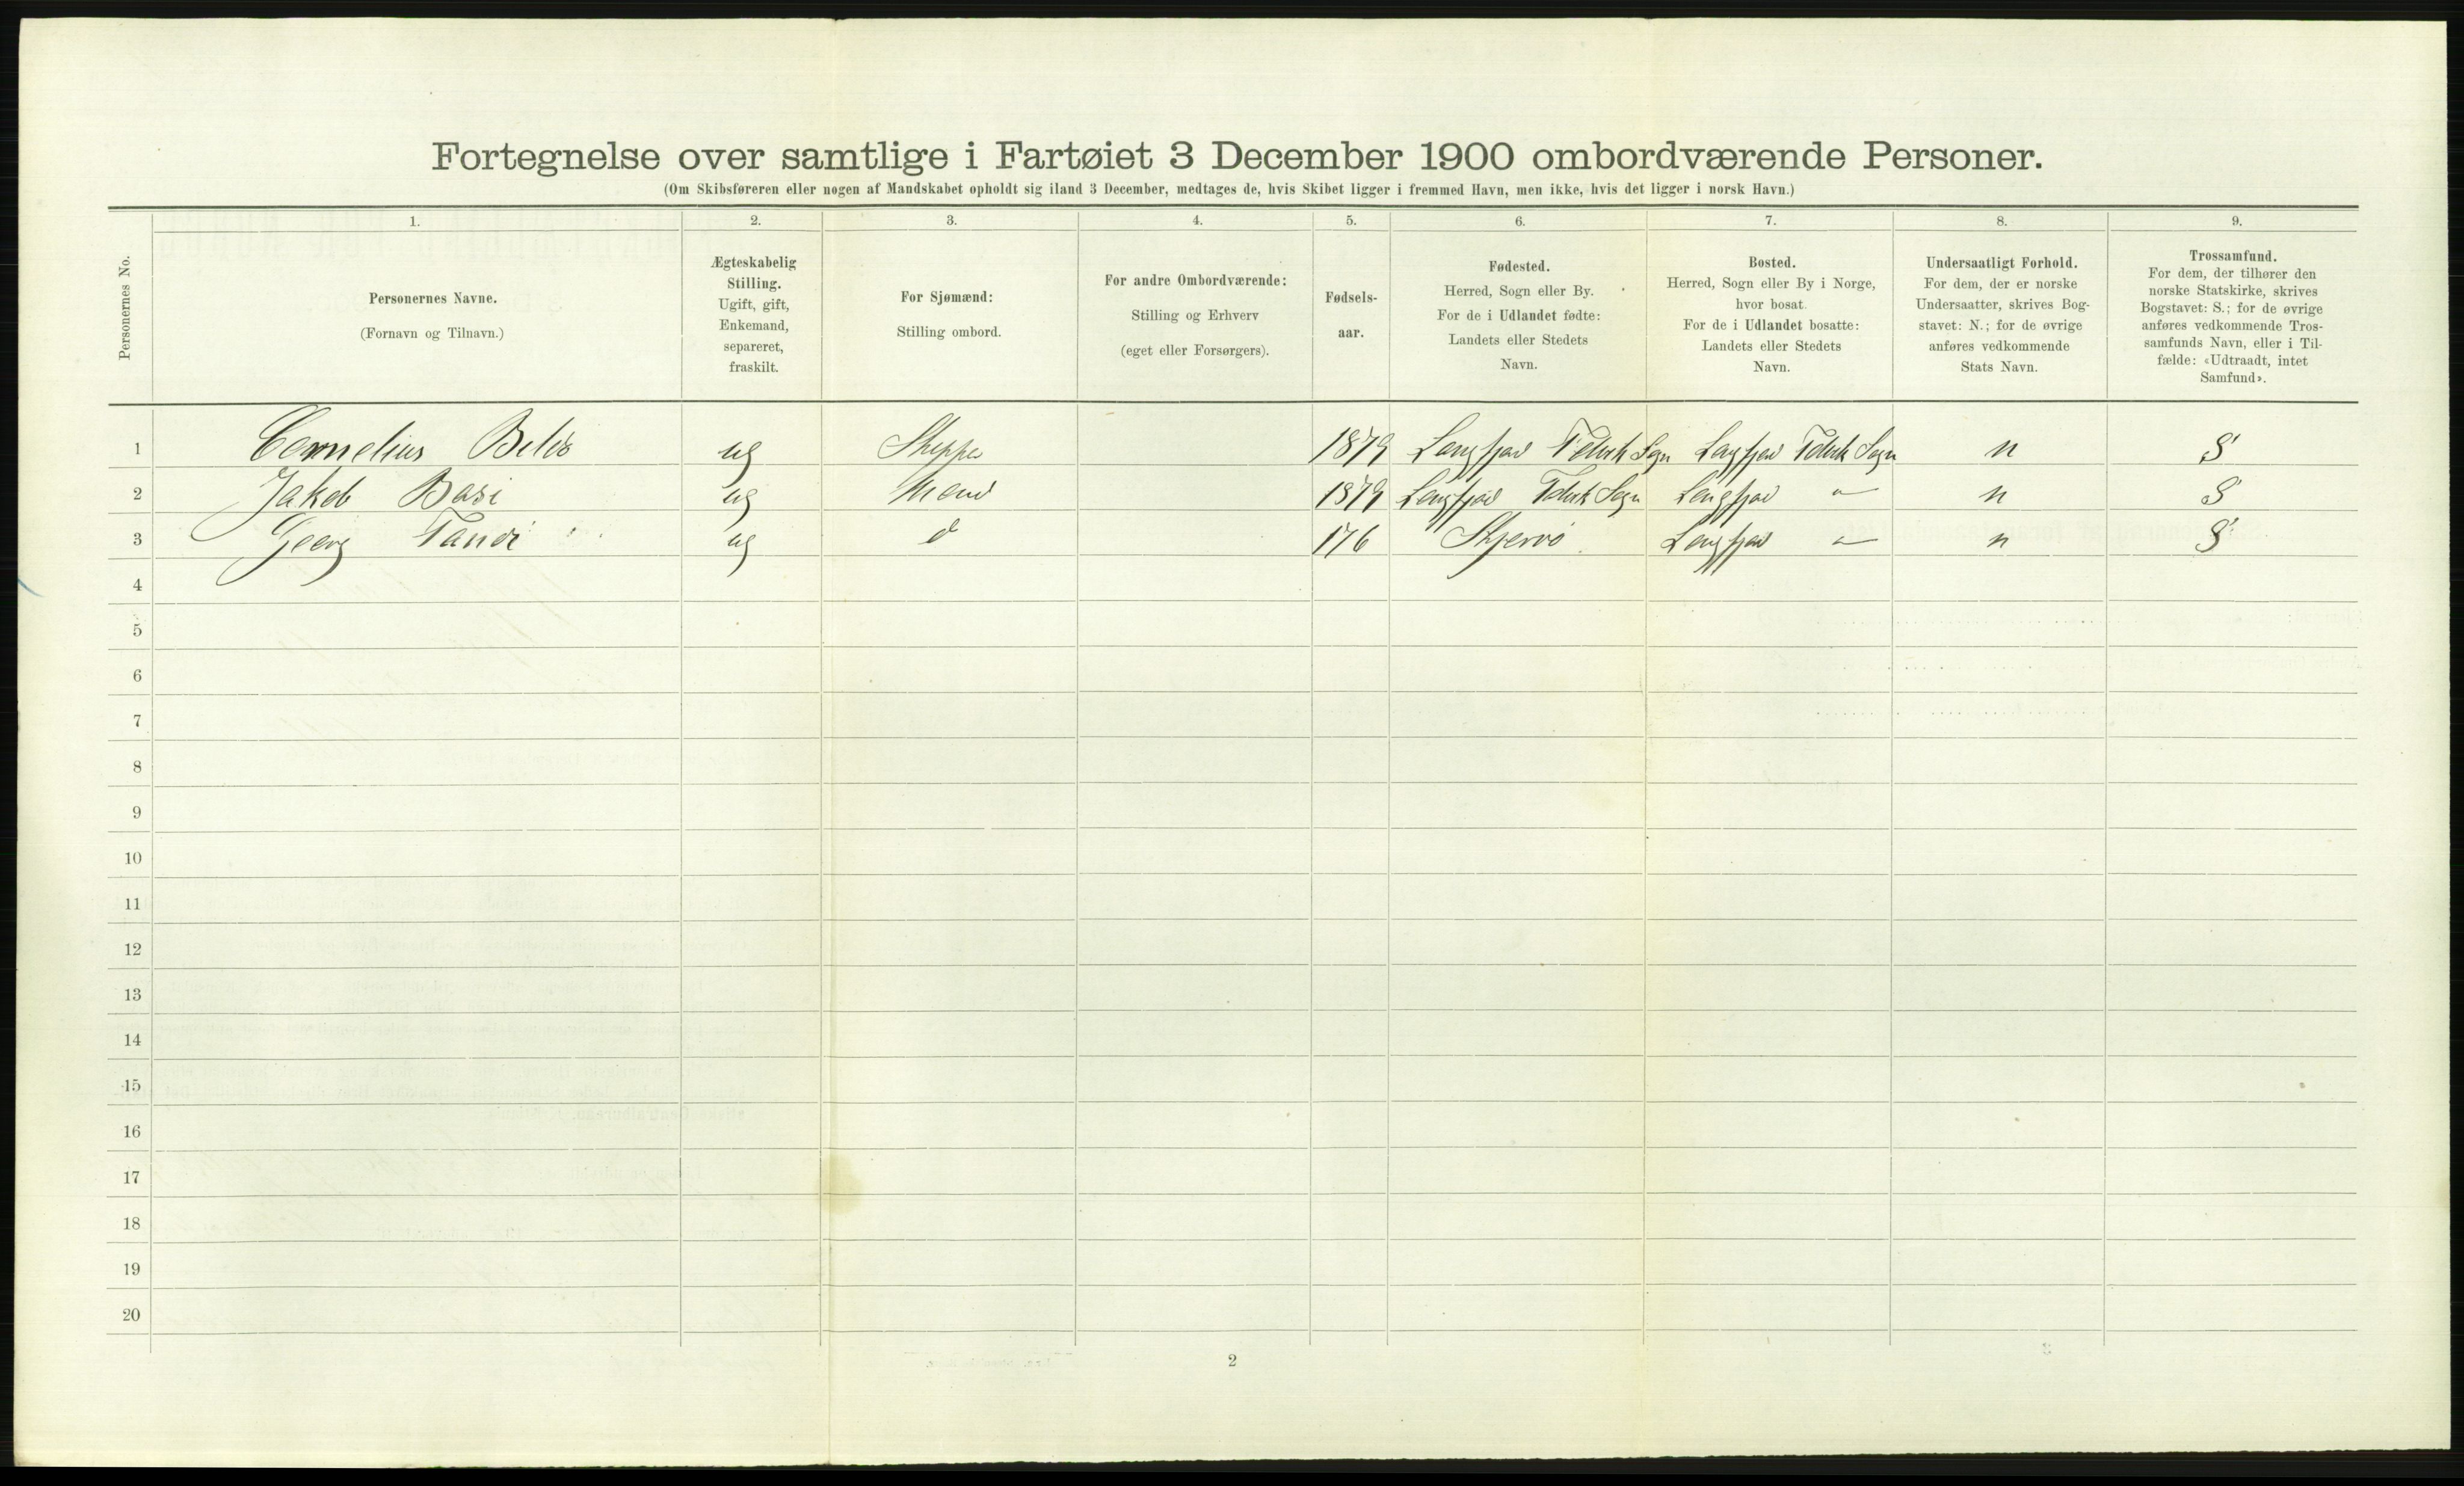 Fortegnelse over samtlige i Fartøiet 3 December 1900 ombordværende Personer.
(Om Skibsføreren eller nogen af Mandskabet opholdt sig iland 3 December, medtages de, hvis Skibet ligger i fremmed Havn, men ikke, hvis det ligger i norsk Havn.)
Personernes No.
1.
Personernes Navne.
(Fornavn og Tilnavn.)
2.
Ægteskabelig
Stilling.
Ugift, gift,
Enkemand,
separeret,
fraskilt.
3.
For Sjømænd:
Stilling ombord.
4.
For andre Ombordværende:
Stilling og Erhverv
(eget eller Forsørgers).
5.
Fødsels-
aar.
6.
Fødested.
Herred, Sogn eller By.
For de i Udlandet fødte:
Landets eller Stedets
Navn.
7.
Bosted.
Herred, Sogn eller By i Norge,
hvor bosat.
For de i Udlandet bosatte:
Landets eller Stedets
Navn.
8.
Undersaatligt Forhold.
For dem, der er norske
Undersaatter, skrives Bog-
stavet: N.; for de øvrige
anføres vedkommende
Stats Navn.
9.
Trossamfund.
For dem, der tilhører den
norske Statskirke, skrives
Bogstavet: S.; for de øvrige
anføres vedkommende Tros-
samfunds Navn, eller i Til-
fælde: «Udtraadt, intet
Samfund».
1 Cornelius ug 1879 Sogn Sogn n S
2 Jakob Basi ug Mand 1879 Sogn " n S
3 Georg ug d 176 Skjervø " n S
4
5
6
7
8
9
10
11
12
13
14
15
16
17
18
19
20
2